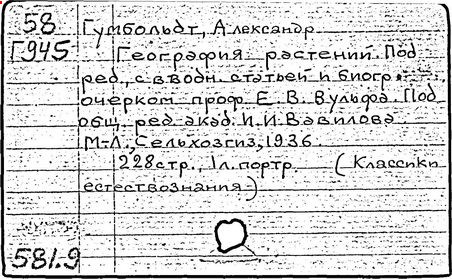 58 Гумбольдт, Александр.
Г945 География растений. Под
ред., с вводн. статьей и биогр.
очерком проф. Е. В. Вульфа. Под
общ. ред. акад. И. И. Вавилова
М-Л., Сельхозгиз, 1936.
228стр., 1л.портр. (Классики
естествознания)
581.9